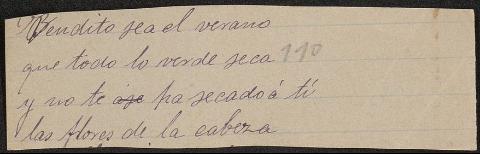 Vendito sea el verano
que todo lo verde seca 110
y no te ase ha secado á tí
las flores de la cabeza